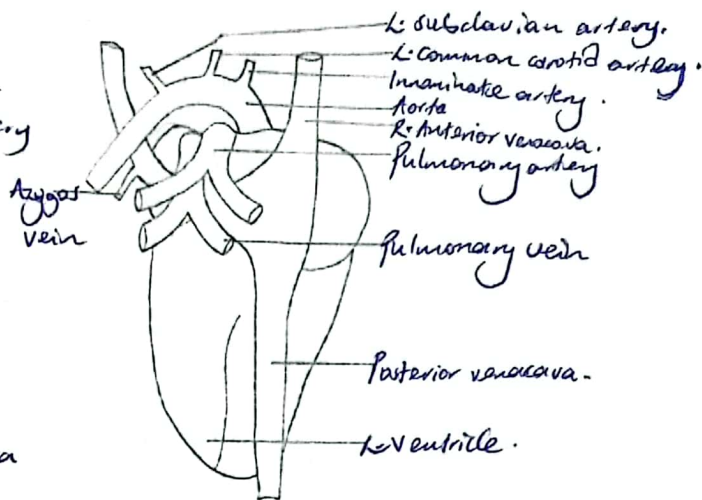 L. subclavian artery.
L. Common carotid artery.
Innominate artery.
Aorta
R. Anterior venacava.
Pulmonary artery
Azygos
vein
Pulmonary vein
Posterior venacava.
L. Ventricle.